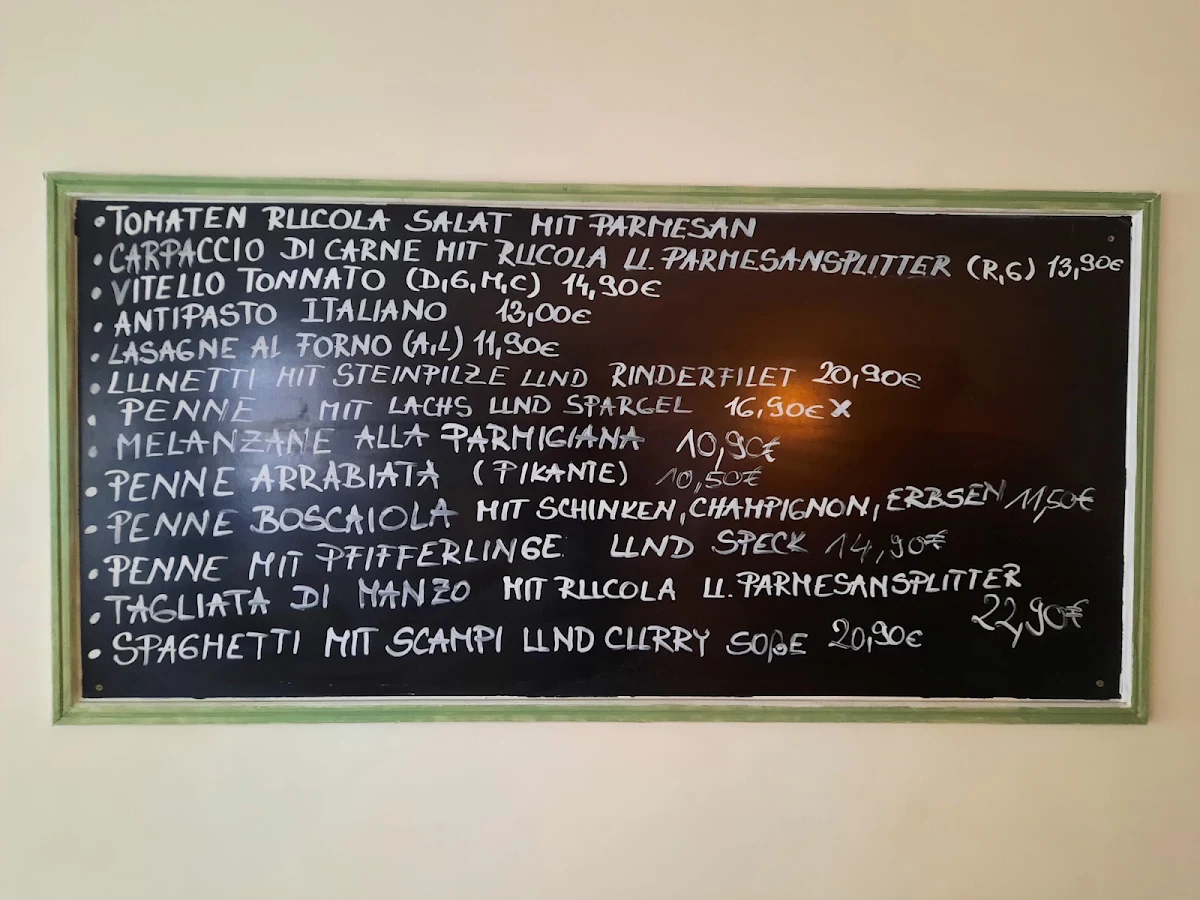 • TOMATEN RUCOLA SALAT MIT PARMESAN
• CARPACCIO DI CARNE MIT RUCOLA U. PARMESANSPLITTER (R,G) 13,90€
• VITELLO TONNATO (D,G,M,C) 14,90€
• ANTIPASTO ITALIANO 13,00€
• LASAGNE AL FORNO (A,L) 11,90€
• LUNETTI MIT STEINPILZE UND RINDERFILET 20,90€
• PENNE MIT LACHS UND SPARGEL 16,90€ X
• MELANZANE ALLA PARMIGIANA 10,90€
• PENNE ARRABIATA (PIKANTE) 10,50€
• PENNE BOSCAIOLA MIT SCHINKEN, CHAMPIGNON, ERBSEN 11,50€
• PENNE MIT PFIFFERLINGE UND SPECK 14,90€
• TAGLIATA DI MANZO MIT RUCOLA U. PARMESANSPLITTER
22,90€
• SPAGHETTI MIT SCAMPI UND CURRY SOßE 20,90€